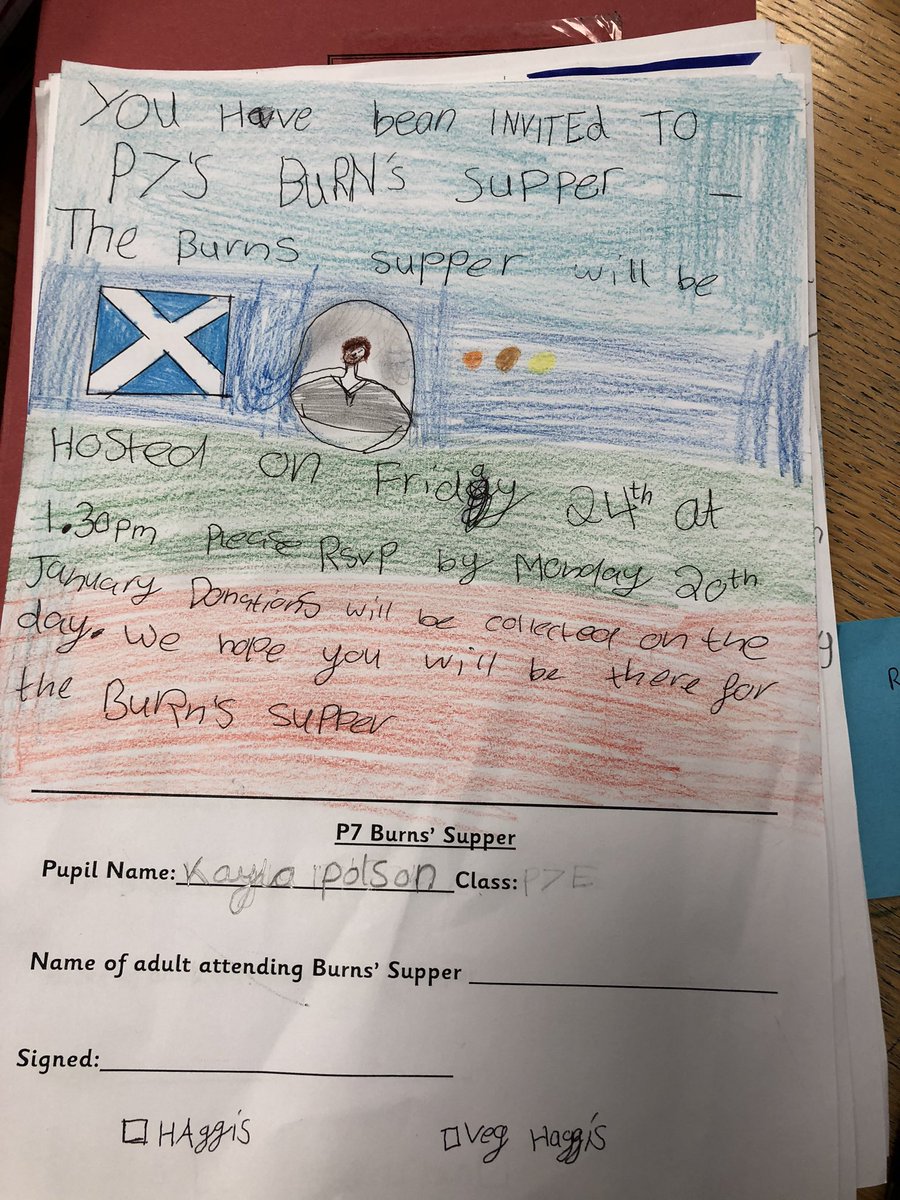 YOU Have bean INVITEd TO
P7'S BURN'S supper _
The Burns supper will be
Hosted on Friday 24th at
1.30pm please Rsvp by Monday 20th
January Donations will be collected on the
day. We hope you will be there for
the BuRn's supper
P7 Burns' Supper
Pupil Name: Kayla polson Class: P7E
Name of adult attending Burns' Supper
Signed:
HAggis Veg Haggis